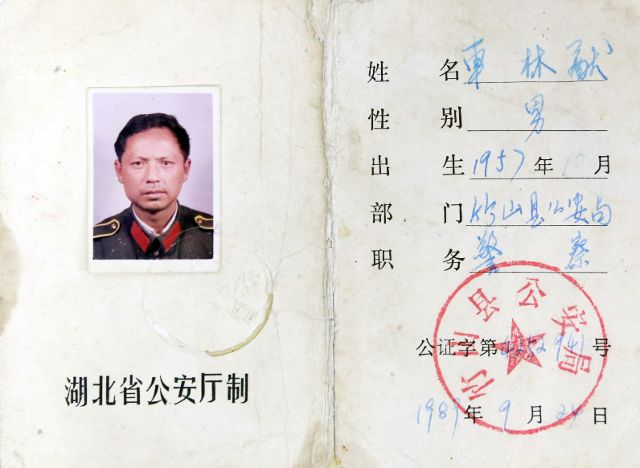 湖北省公安厅制
姓 名 車林献
性 别 男
出 生 1957 年 10 月
部 门 竹山县公安局
职 务 警察
公证字第 941 号
1989 年 9 月 24 日
县公安局